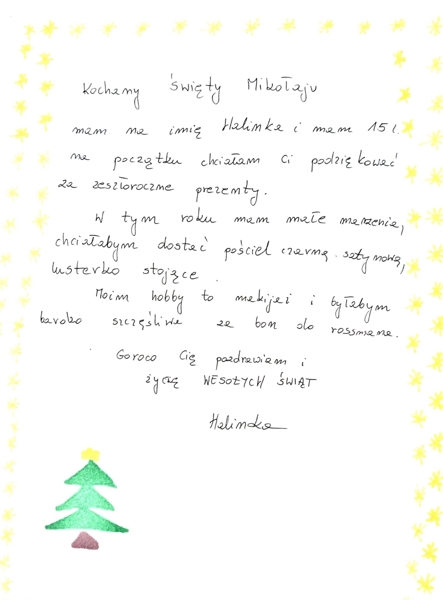 Kochany Święty Mikołaju
mam na imię Halinka i mam 15 l.
na początku chciałam Ci podziękować
za zeszłoroczne prezenty.
W tym roku mam małe marzenia,
chciałabym dostać pościel czarną satynową,
lusterko stojące.
Moim hobby to makijaż i byłabym
bardzo szczęśliwa za bon do rossmana.
Gorąco Cię pozdrawiam i
życzę WESOŁYCH ŚWIĄT
Halinka